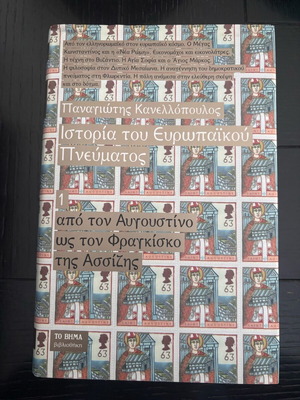 Από τον ελληνορωμαϊκό στον ευρωπαϊκό κόσμο. Ο Μέγας
Κωνσταντίνος και η «Νέα Ρώμη». Εικονομάχοι και εικονολάτρες.
Η τέχνη στο Βυζάντιο. Η Αγία Σοφία και ο Άγιος Μάρκος.
Η φιλοσοφία στον Δυτικό Μεσαίωνα. Η αναγέννηση του δημοκρατικού
πνεύματος στη Φλωρεντία. Η πάλη ανάμεσα στην ελεύθερη σκέψη
και στο δόγμα.
Παναγιώτης Κανελλόπουλος
Ιστορία του Ευρωπαϊκού
Πνεύματος
1
από τον Αυγουστίνο
ως τον Φραγκίσκο
της Ασσίζης
ΤΟ ΒΗΜΑ
βιβλιοθήκη
63